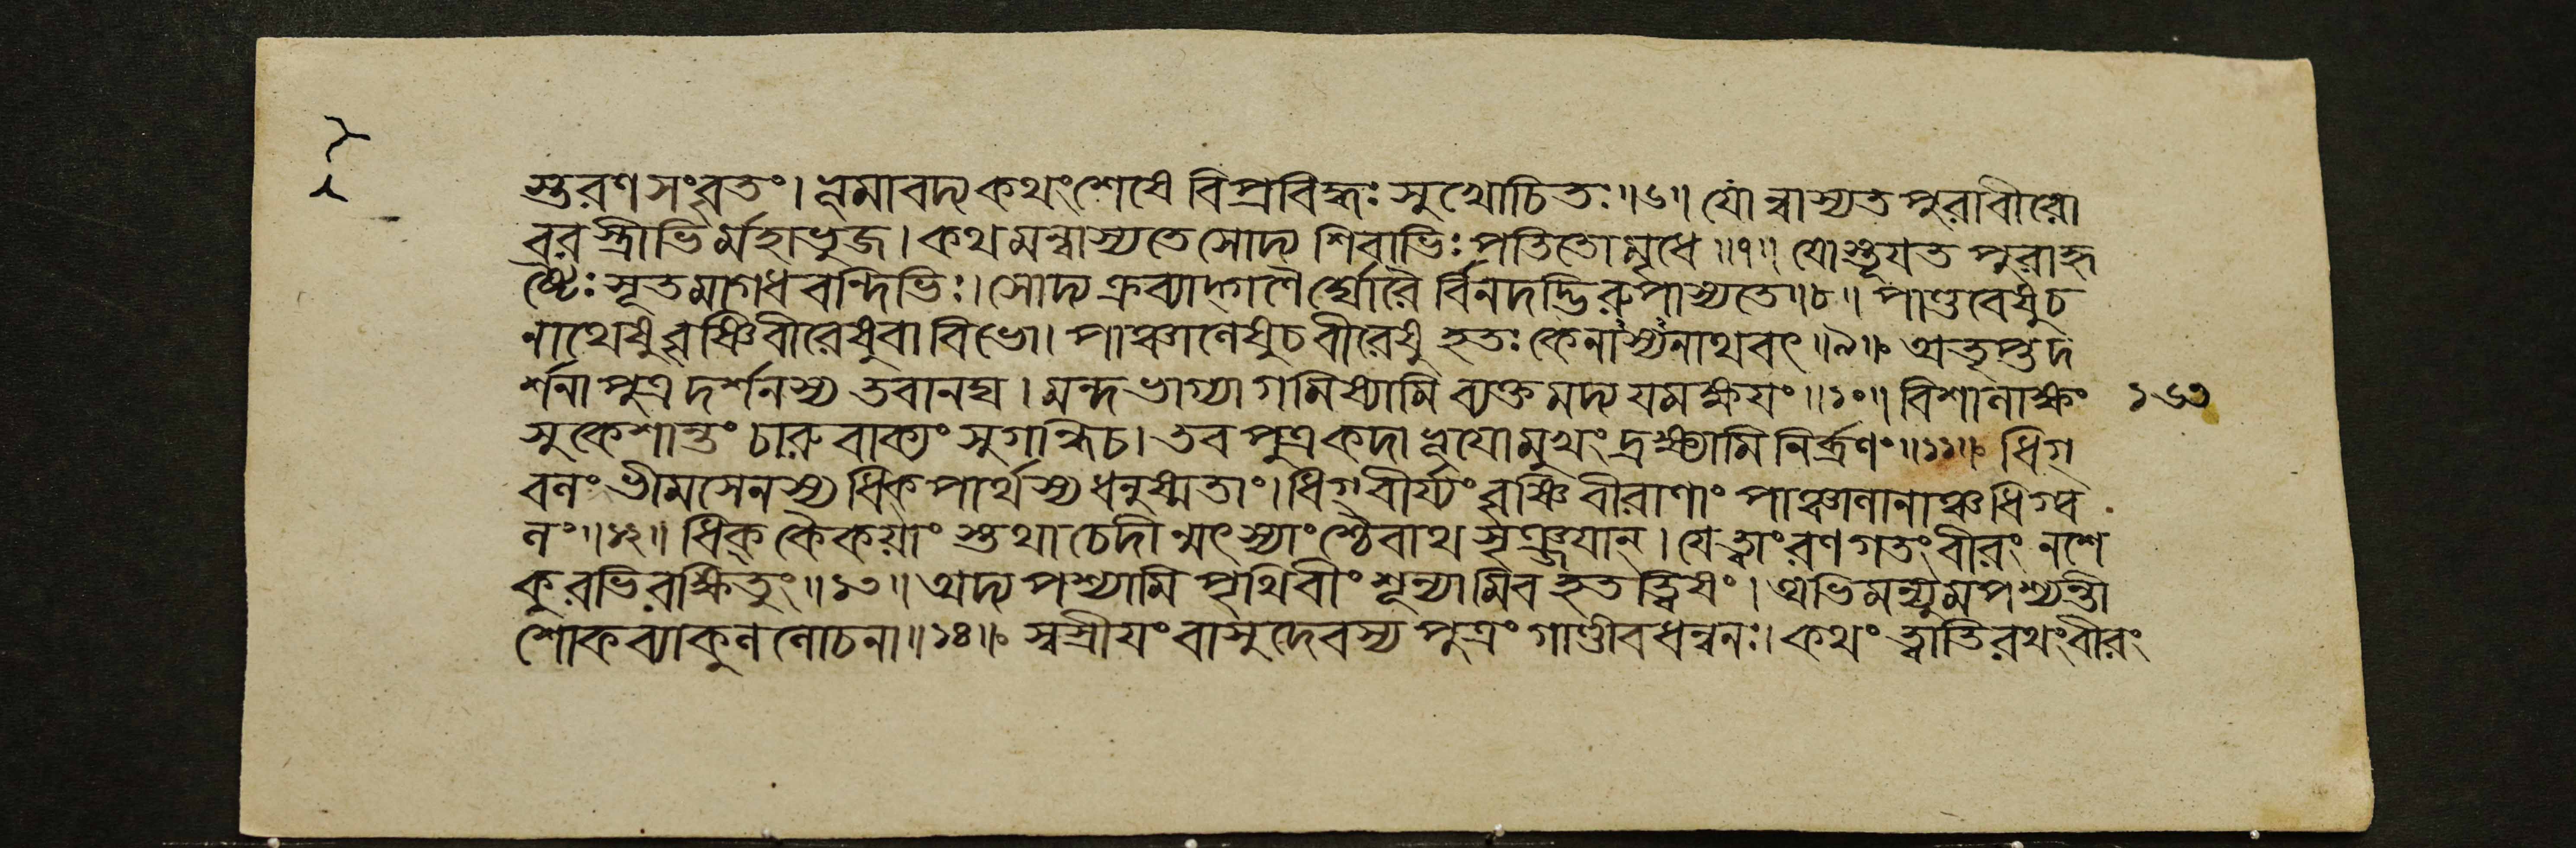 স্তরণসংবৃতং। ভূমাবদ্য কথং শেষে বিপ্রবিদ্ধঃ সুখোচিতঃ॥৬॥ যোন্বাস্যত পুরা বীরো
বরস্ত্রীভির্মহাভুজ। কথমন্বাস্যতে সোদ্য শিবাভিঃ পতিতো মৃধে॥৭॥ যোস্তূযত পুরা হৃ
ষ্টৈঃ সূতমাগধবন্দিভিঃ। সোদ্য ক্রব্যাদ্গণৈর্ঘোরৈর্বিনদদ্ভিরুপাস্যতে॥৮॥ পাণ্ডবেষু চ
নাথেষু বৃষ্ণিবীরেষু বা বিভো। পাঞ্চালেষু চ বীরেষু হতঃ কেনাস্যনাথবৎ॥৯॥ অতৃপ্তদ
র্শনা পুত্র দর্শনস্য তবানঘ। মন্দভাগ্যা গমিষ্যামি ব্যক্তমদ্য যমক্ষযং॥১০॥ বিশালাক্ষং
সুকেশান্তং চারুবাক্যং সুগন্ধি চ। তব পুত্র কদা ভূযো মুখং দ্রক্ষ্যামি নির্ব্রণং॥১১॥ ধিগ্
বলং ভীমসেনস্য ধিক্ পার্থস্য ধনুষ্মতাং। ধিগ্ বীর্য্যং বৃষ্ণিবীরাণাং পাঞ্চালানাঞ্চ ধিগ্ব
লং॥১২॥ ধিক্ কৈকয়াংস্তথা চেদীন্মৎস্যাংশ্চৈবাথ সৃঞ্জযান্। যে ত্বাং রণগতং বীরং ন শে
কুরভিরক্ষিতুং॥১৩॥ অদ্য পশ্যামি পৃথিবীং শূন্যামিব হতত্বিষং। অভিমন্যুমপশ্যন্তী
শোকব্যাকুললোচনা॥১৪॥ স্বস্রীযং বাসুদেবস্য পুত্রং গাণ্ডীবধন্বনঃ। কথং ত্বাতিরথং বীরং
১৬৩